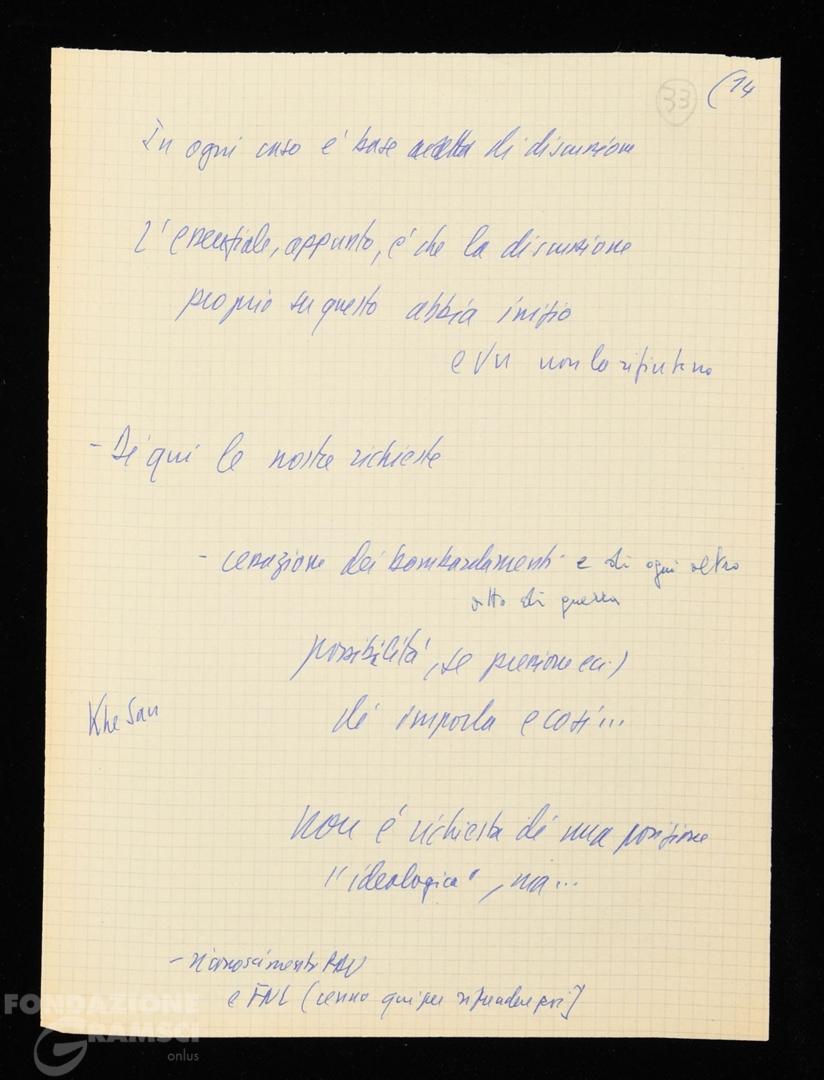 33
(14
In ogni caso è base di discussione
L'essenziale, appunto, è che la discussione
proprio su questo abbia inizio
e non lo rifiutano
- Di qui le nostre richieste
- cessazione dei bombardamenti e di ogni altro
atto di guerra
possibilità, (se pressione ecc)
Khe San
di imporla e così...
non è richiesta di una posizione
"ideologica", ma...
- riconoscimento RDV
e FNL (cenno qui per riprendere poi]
FONDAZIONE
GRAMSCI
onlus